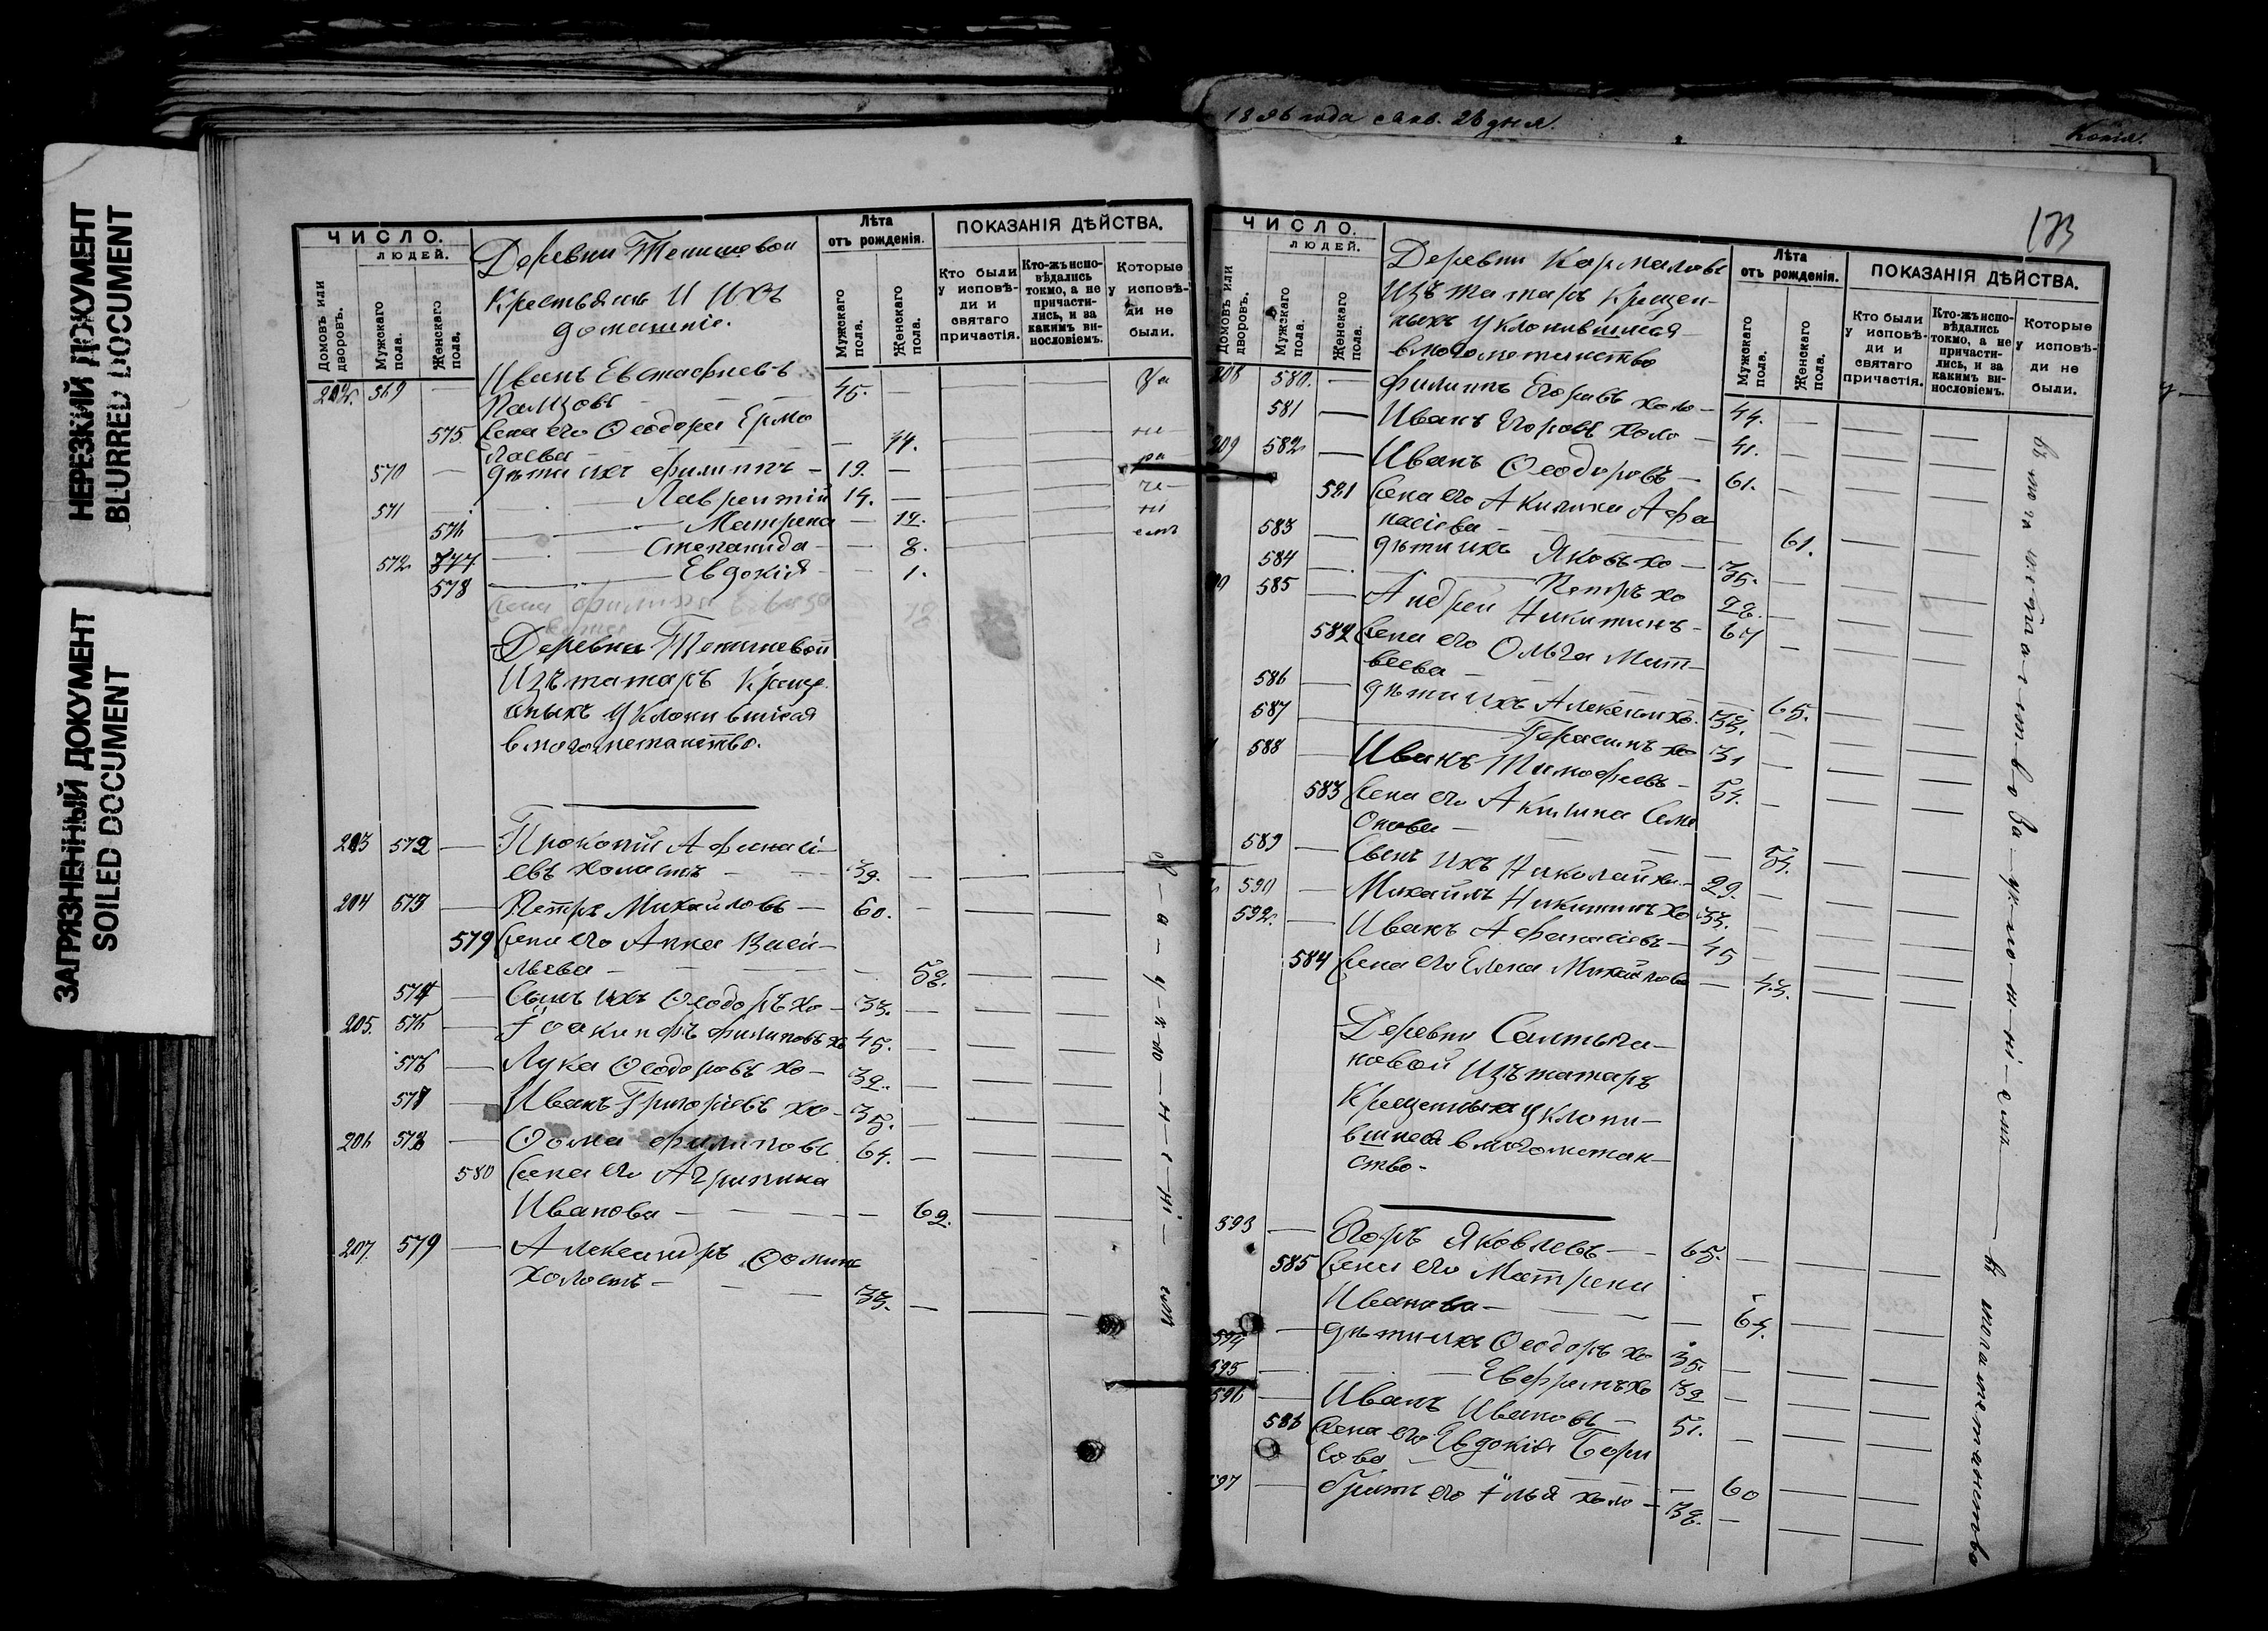 НЕРЕЗКИЙ ДОКУМЕНТ
BLURRED DOCUMENT
ЗАГРЯЗНЕННЫЙ ДОКУМЕНТ
SOILED DOCUMENT
ЧИСЛО.
ЛЮДЕЙ.
Домовъ или дворовъ.
Мужскаго пола.
Женскаго пола.
Деревни
Крестьянъ и ихъ
домашніе.
Лѣта
отъ рожденія.
Мужскаго пола.
Женскаго пола.
ПОКАЗАНІЯ ДѢЙСТВА.
Кто были у исповѣди и святаго причастія.
Кто-жъ исповѣдались токмо, а не причастились, и за какимъ виновіемъ.
Которые у исповѣди не были.
569 — Иванъ Евстафиевъ 45. —
575 Жена его Ѳеодора Ермо
лаева — 44.
570 — дѣти ихъ Филиппъ — 19. —
571 Лаврентій 14. —
Матрена —
572 577 Степанида — 8.
578 Евдокія — 1.
Деревни
Изъ татаръ Креще
ныхъ уклонившіяся
в могометанство.
203 572 — Прокопій Афанасі-
евъ холостъ — 39. —
204 573 — Петръ Михайловъ — 60. —
579 Жена его Анна Васи-
льева — 58.
574 — Сынъ ихъ Ѳеодоръ хо — 33. —
205. 575 — Іоакинфъ Филиповъ хо 45. —
576 — Лука Ѳеодоровъ хо — 32. —
Иванъ Григоріевъ хо — 35. —
206 578 — Ѳома Филиповъ 64. —
580 Жена его Агрипина
Иванова — 62.
207. 579 — Александръ Ѳоминъ
холостъ — 33. —
1896 года Янв. 28 дня.
Копія.
173
ЧИСЛО.
ЛЮДЕЙ.
Домовъ или дворовъ.
Мужскаго пола.
Женскаго пола.
Деревни Кармаловы
Изъ татаръ Крещен-
ныхъ уклонившіяся
в могометанство
Лѣта
отъ рожденія.
Мужскаго пола.
Женскаго пола.
ПОКАЗАНІЯ ДѢЙСТВА.
Кто были у исповѣди и святаго причастія.
Кто-жъ исповѣдались токмо, а не причастились, и за какимъ виновіемъ.
Которые у исповѣди не были.
208 580. — Филиппъ Егоровъ холо — 44. —
581 — Иванъ Егоровъ холо — 41. —
209 582 — Иванъ Ѳеодоровъ — 61. —
581 Жена его Акилина Афа
насіева — 61.
583 — дѣти ихъ Яковъ хо — 35. —
584 — Петръ хо 28. —
585 — Андрей Никитинъ — 67 —
582 Жена его Ольга Мат-
веева — 65.
586 — дѣти ихъ Алексѣй хо. 33. —
587 — Герасимъ хо 31 —
588 — Иванъ Тимофеевъ — 54. —
583 Жена его Акилина Семе
онова — 54.
589 — Сынъ ихъ Николай хо — 29. —
590 — Михаилъ Никитинъ хо 33. —
592. — Иванъ Афанасіевъ — 45 —
584 Жена его Елена Михайлова — 43.
Деревни Салтыга-
новой Изъ татаръ
Крещеныхъ уклони-
вшиеся в могометан-
ство.
593 — Егоръ Яковлевъ — 65. —
585 Жена его Матрена
Иванова — 64.
594 — дѣти ихъ Ѳеодоръ хо 35. —
595 — Ефремъ хо 32 —
596 — Иванъ Ивановъ — 51. —
586 Жена его Евдокія Бори
сова — 60
597 — братъ его Илья холо — 38. —